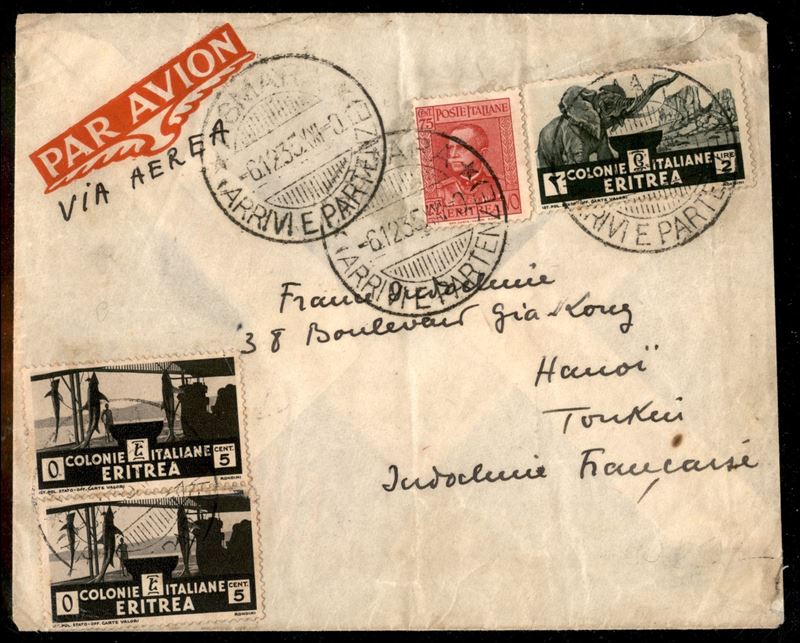 PAR AVION
VIA AEREA
ASMARA
-6.12.35.XIV-0
ARRIVI E PARTENZE
CENT. 75
POSTE ITALIANE
ERITREA
-6.12.35
ARRIVI E PARTENZE
COLONIE ITALIANE
ERITREA
LIRE 2
IST. POL. STATO-OFF. CARTE VALORI
ARRIVI E PARTENZE
France Indochine
38 Boulevard Gia-Long
Hanoï
Tonkin
Indochine Française
COLONIE ITALIANE
ERITREA
CENT. 5
IST. POL. STATO-OFF. CARTE VALORI
RONDINI
COLONIE ITALIANE
ERITREA
CENT. 5
IST. POL. STATO-OFF. CARTE VALORI
RONDINI